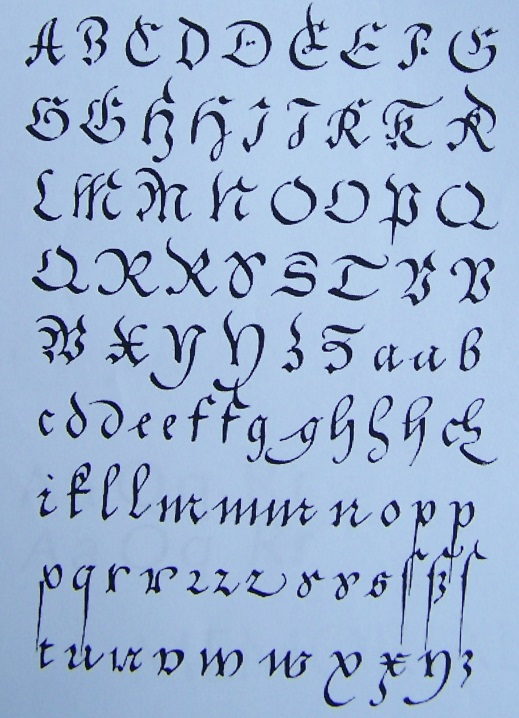 A B C D D E E F G
G G H H I I K K K
L M M N O O P Q
Q R R S S T V V
W X Y Y Z S a a b
c d d e e f f g g h h h ch
i k l l m m m n o p p
p q r r r r r s s s ſ ß ſ
t u u v w w x x y z